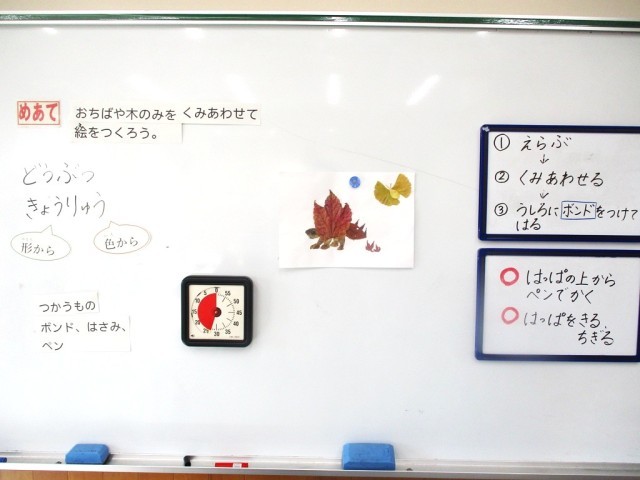 めあて
おちばや木のみを くみあわせて
絵をつくろう。
どうぶつ
きょうりゅう
形から
色から
つかうもの
ボンド、はさみ、
ペン
0
5
10
15
20
25
30
35
40
45
50
55
① えらぶ
↓
② くみあわせる
↓
③ うしろに ボンド をつけて
はる
○ はっぱの上から
ペンでかく
○ はっぱをきる、
ちぎる